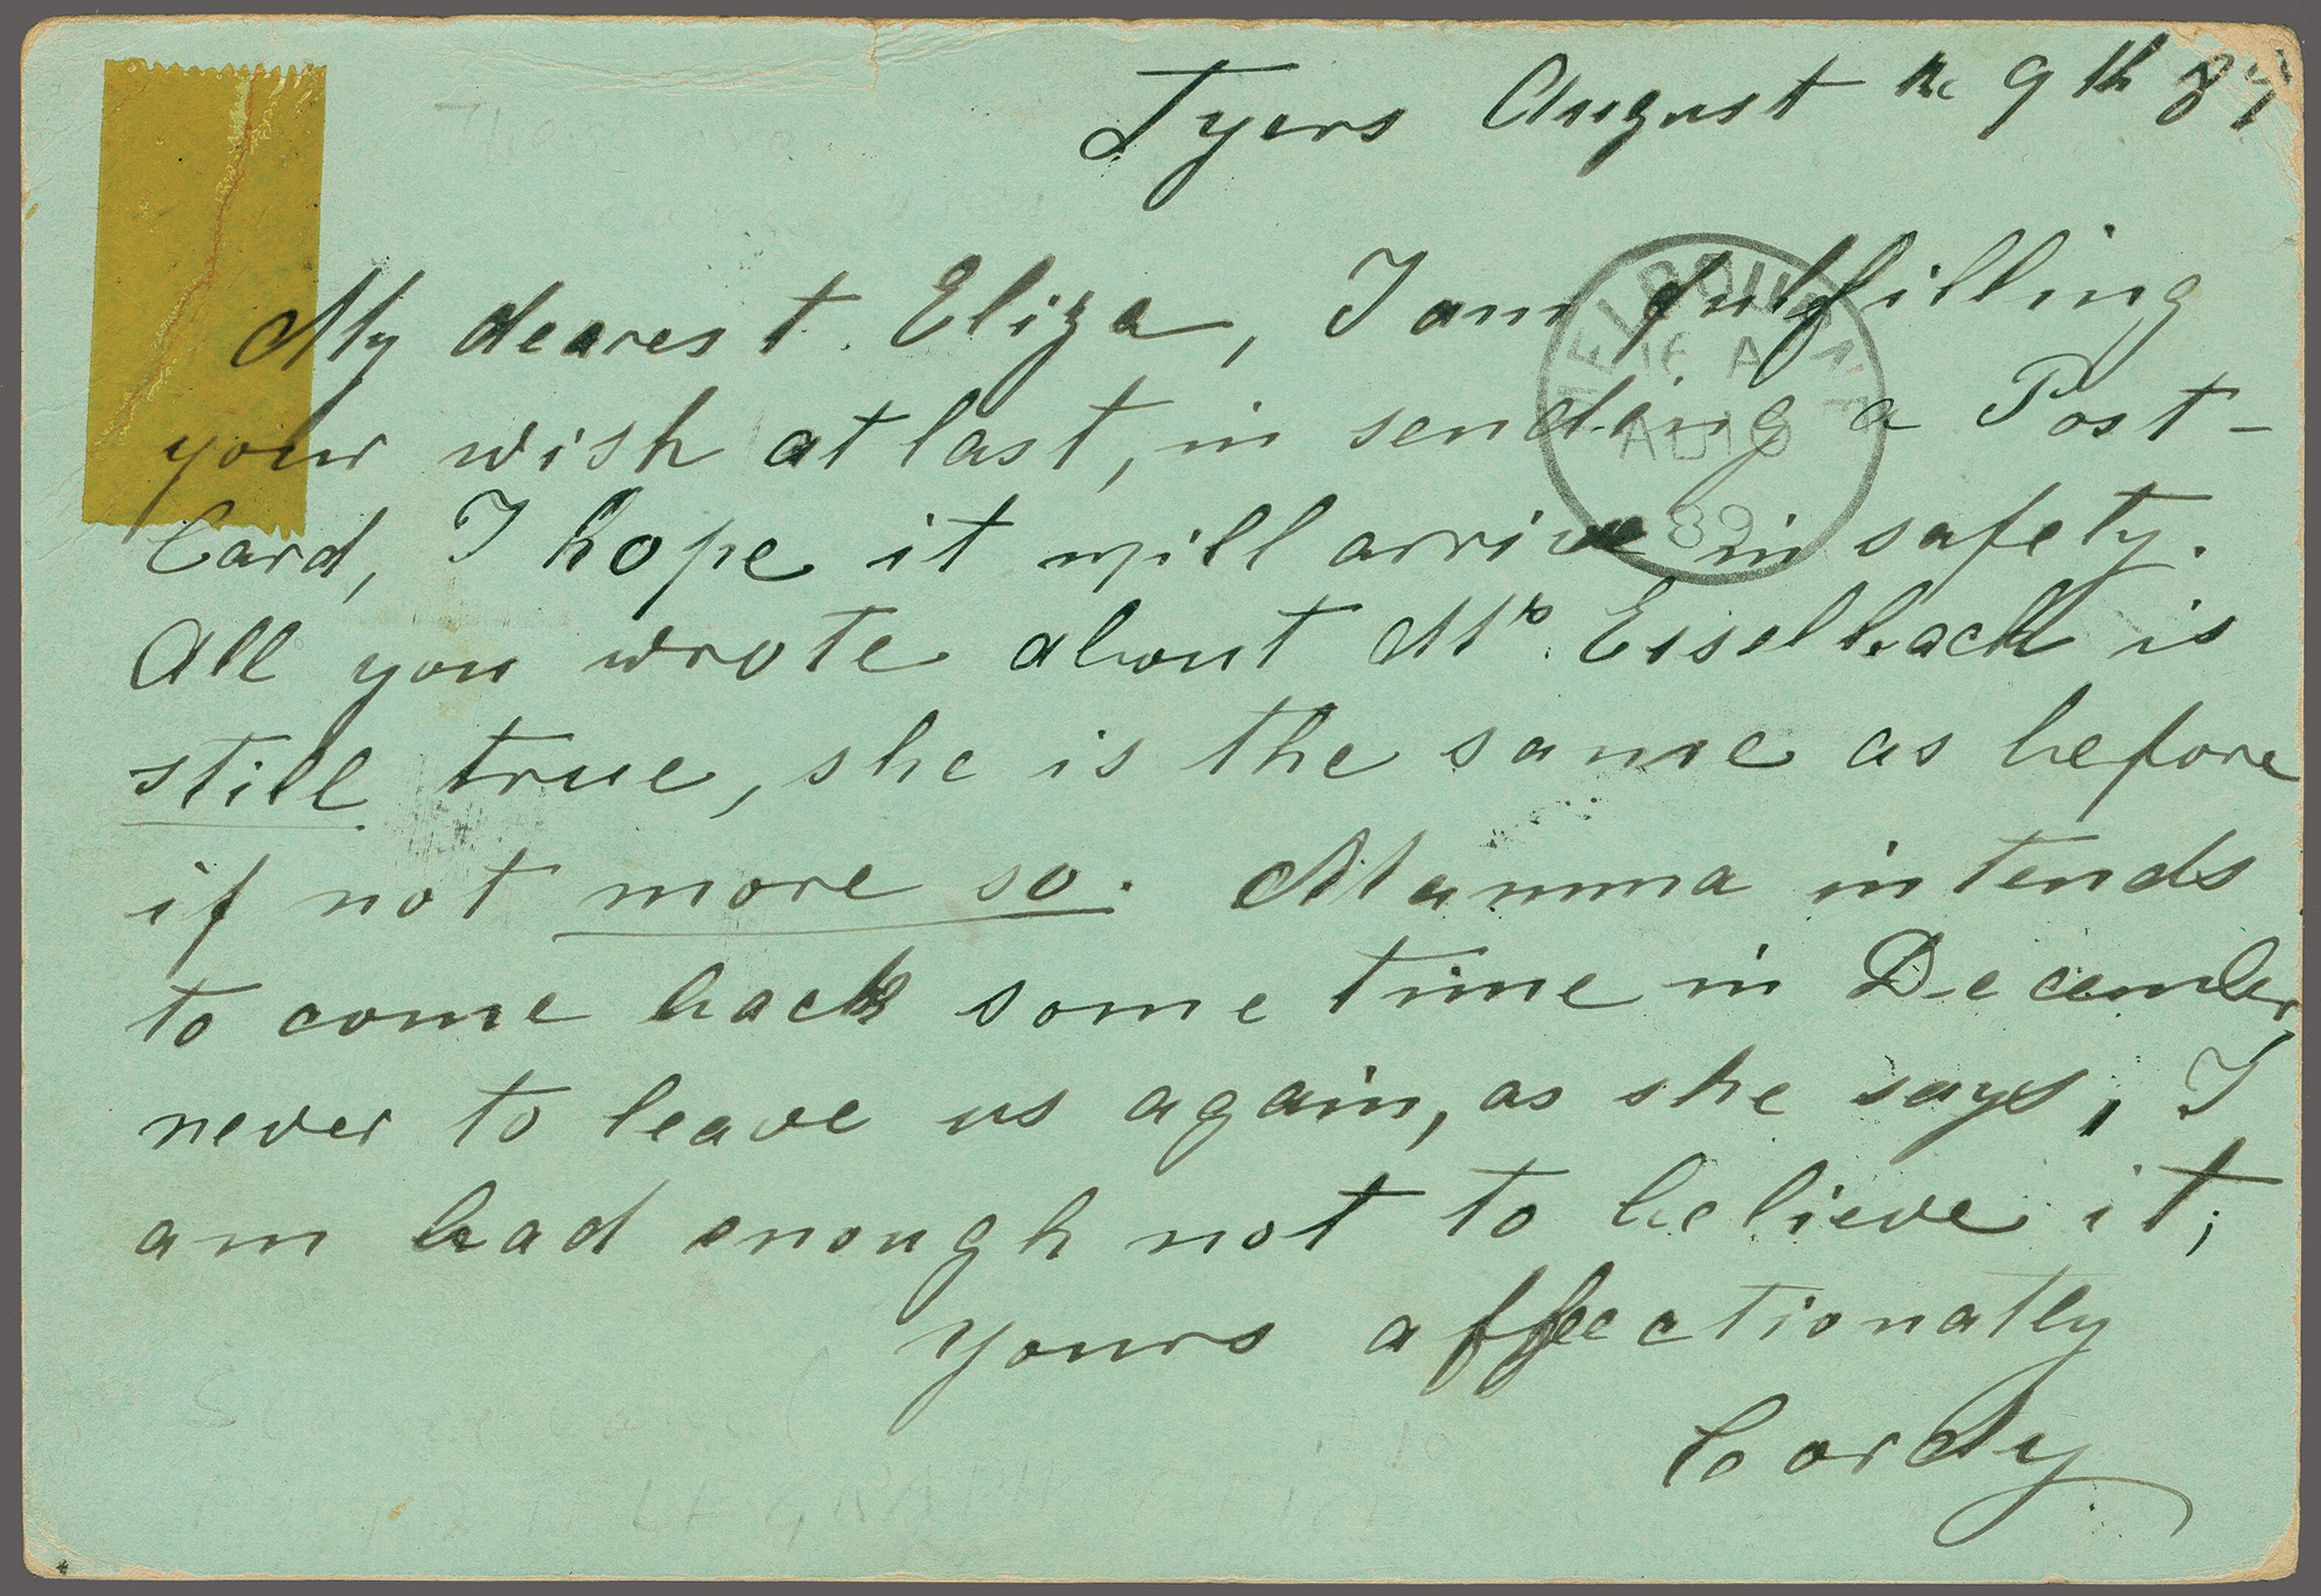 Tyers August the 9th 89
My dearest. Eliza, I am fulfilling
your wish at last, in sending a Post-
Card, I hope it will arrive in safety.
All you wrote about Mrs. Eisselbach is
still true, she is the same as before
if not more so. Mamma intends
to come back some time in December,
never to leave us again, as she says, I
am bad enough not to believe it;
yours affectionatly
Cordy
MELBOURNE
AU 10
89